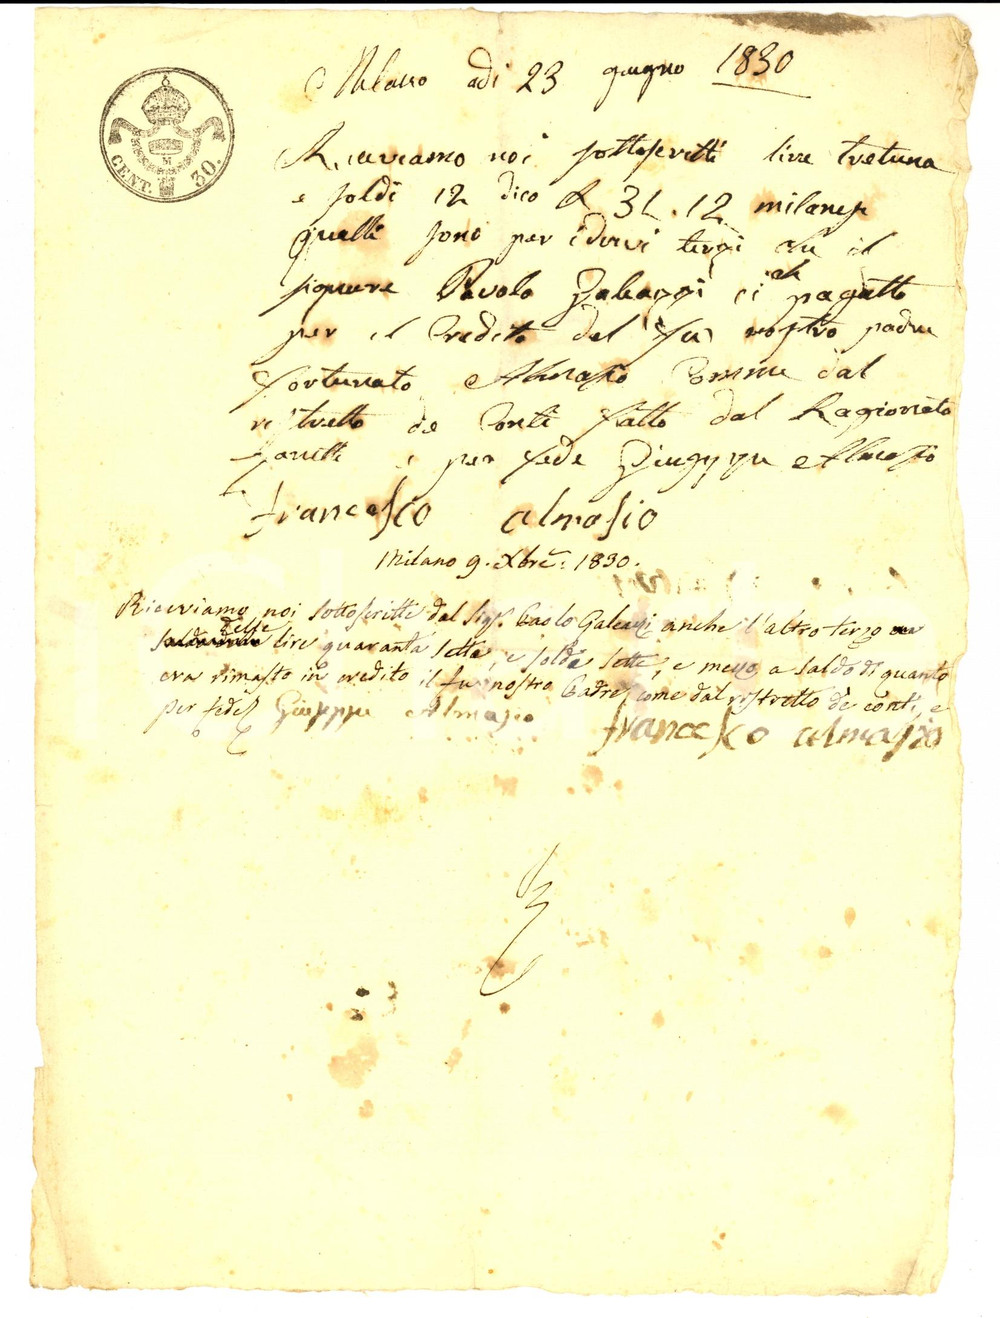 CENT. 30.
M
Milano adi 23 giugno 1830
Riceviamo noi sottoscritti lire tretuna
e soldi 12 dico £ 31.12 milanesi
quelli sono per i dovi terzi che il
signore Pavolo Galeazzi ci à pagatto
per il Credito del fu nostro padre
Fortunato Almasio Comme dal
ristretto de Conti fatto dal Ragionato
e per fede Giuseppe Almasio
francesco almasio
Milano 9. Xbre: 1830.
Riceviamo noi sottoscritti dal Sigr. Paolo Galeazzi anche l'altro terzo
delle lire quaranta sette, e soldi sette, e mezzo a saldo di quanto
era rimasto in credito il fu nostro Padre, come dal ristretto de conti, e
per fede Giuseppe Almasio francesco almasio